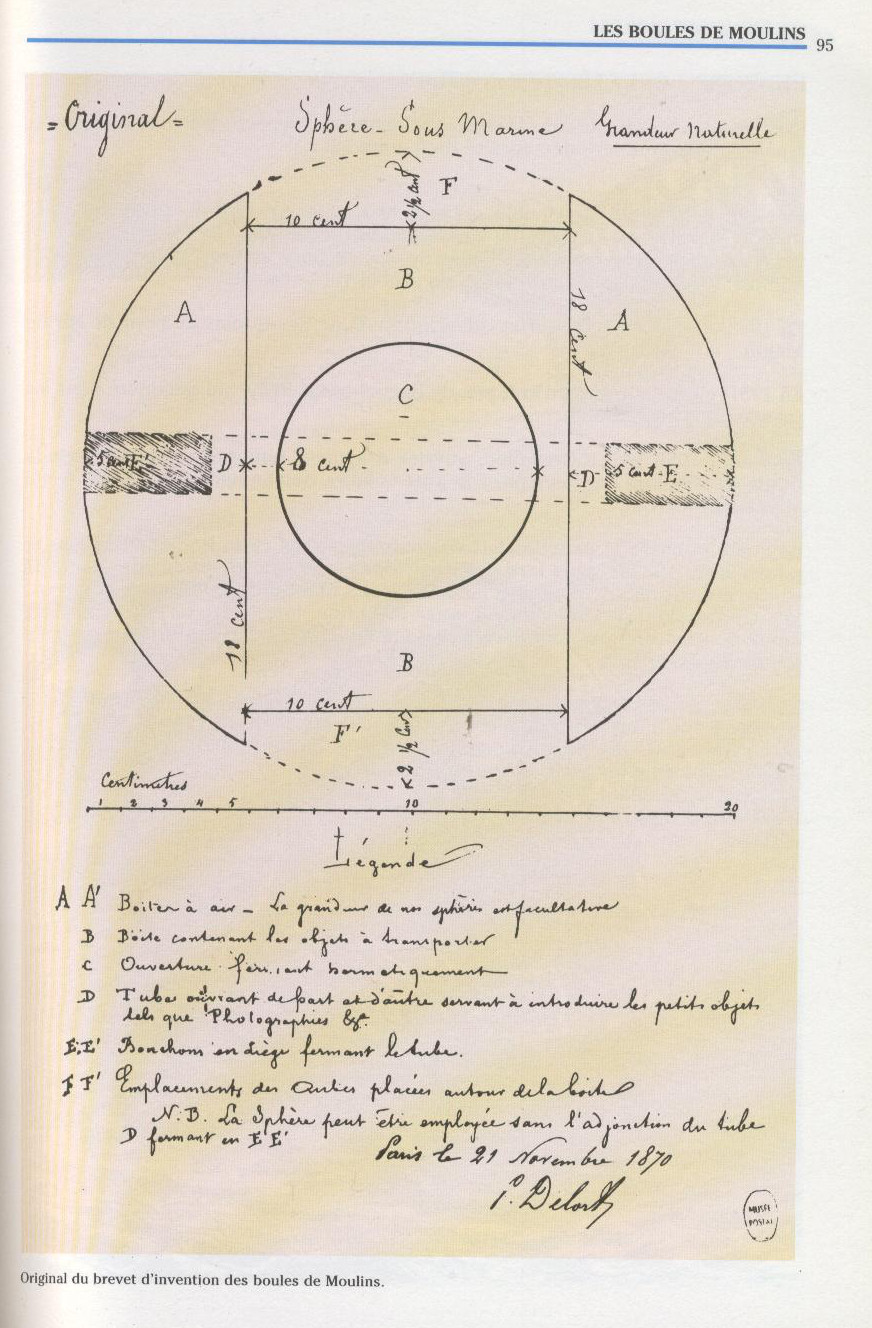 LES BOULES DE MOULINS
95
= Original =
Sphère - Sous Marine
Grandeur Naturelle
2 ½ cent
F
10 cent
B
A
18 cent
A
C
5 cent E'
D
8 cent
D
5 cent E
18 cent
B
10 cent
F'
2 ½ Cent
Centimetres
1 2 3 4 5 10 20
Légende
A A' Boites à air - La grandeur de nos sphères est facultative
B Boite contenant les objets à transporter
C Ouverture hermetiquement
D Tube ouvrant de part et d'autre servant à introduire les petits objets
tels que Photographies &a.
E, E' Bouchons en liège fermant le tube.
F F' Emplacements des placées autour de la boite
N.B. La Sphère peut être employée sans l'adjonction du tube
D fermant en E E'
Paris le 21 Novembre 1870
P. Delort
MUSEE
POSTAL
Original du brevet d'invention des boules de Moulins.